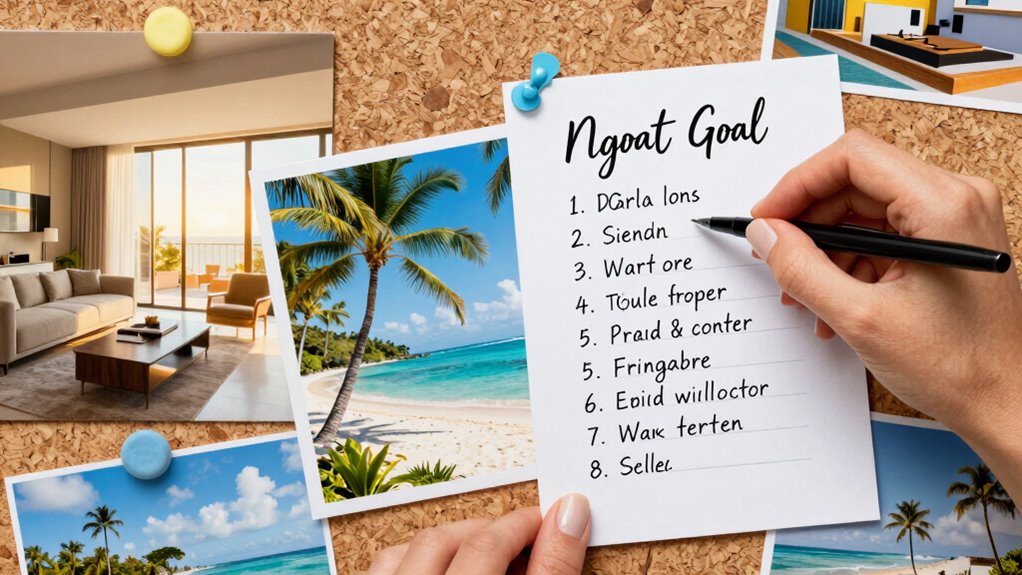 Ngoat Goal
1. DGrla lons
2. Siendn
3. Wart ore
4. TGule froper
5. Praid & conter
5. Fringabre
6. Eoid willoctor
7. Wax ferten
8. Seller